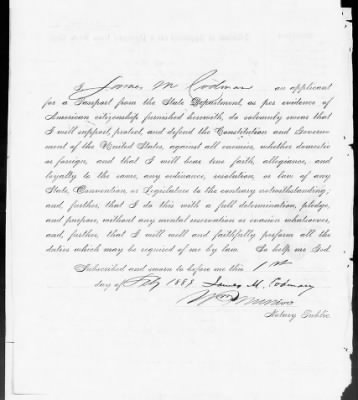 I James M Codman an applicant
for a Passport from the State Department, as per evidence of
American citizenship furnished herewith, do solemnly swear that
I will support, protect, and defend the Constitution and Govern-
ment of the United States, against all enemies, whether domestic
or foreign, and that I will bear true faith, allegiance, and
loyalty to the same, any ordinance, resolution, or law of any
State, Convention, or Legislature to the contrary notwithstanding;
and, further, that I do this with a full determination, pledge,
and purpose, without any mental reservation or evasion whatsoever,
and, further, that I will well and faithfully perform all the
duties which may be required of me by law. So help me God.
Subscribed and sworn to before me this 1st
day of Feby 1889 James M. Codman
Munroe
Notary Public.